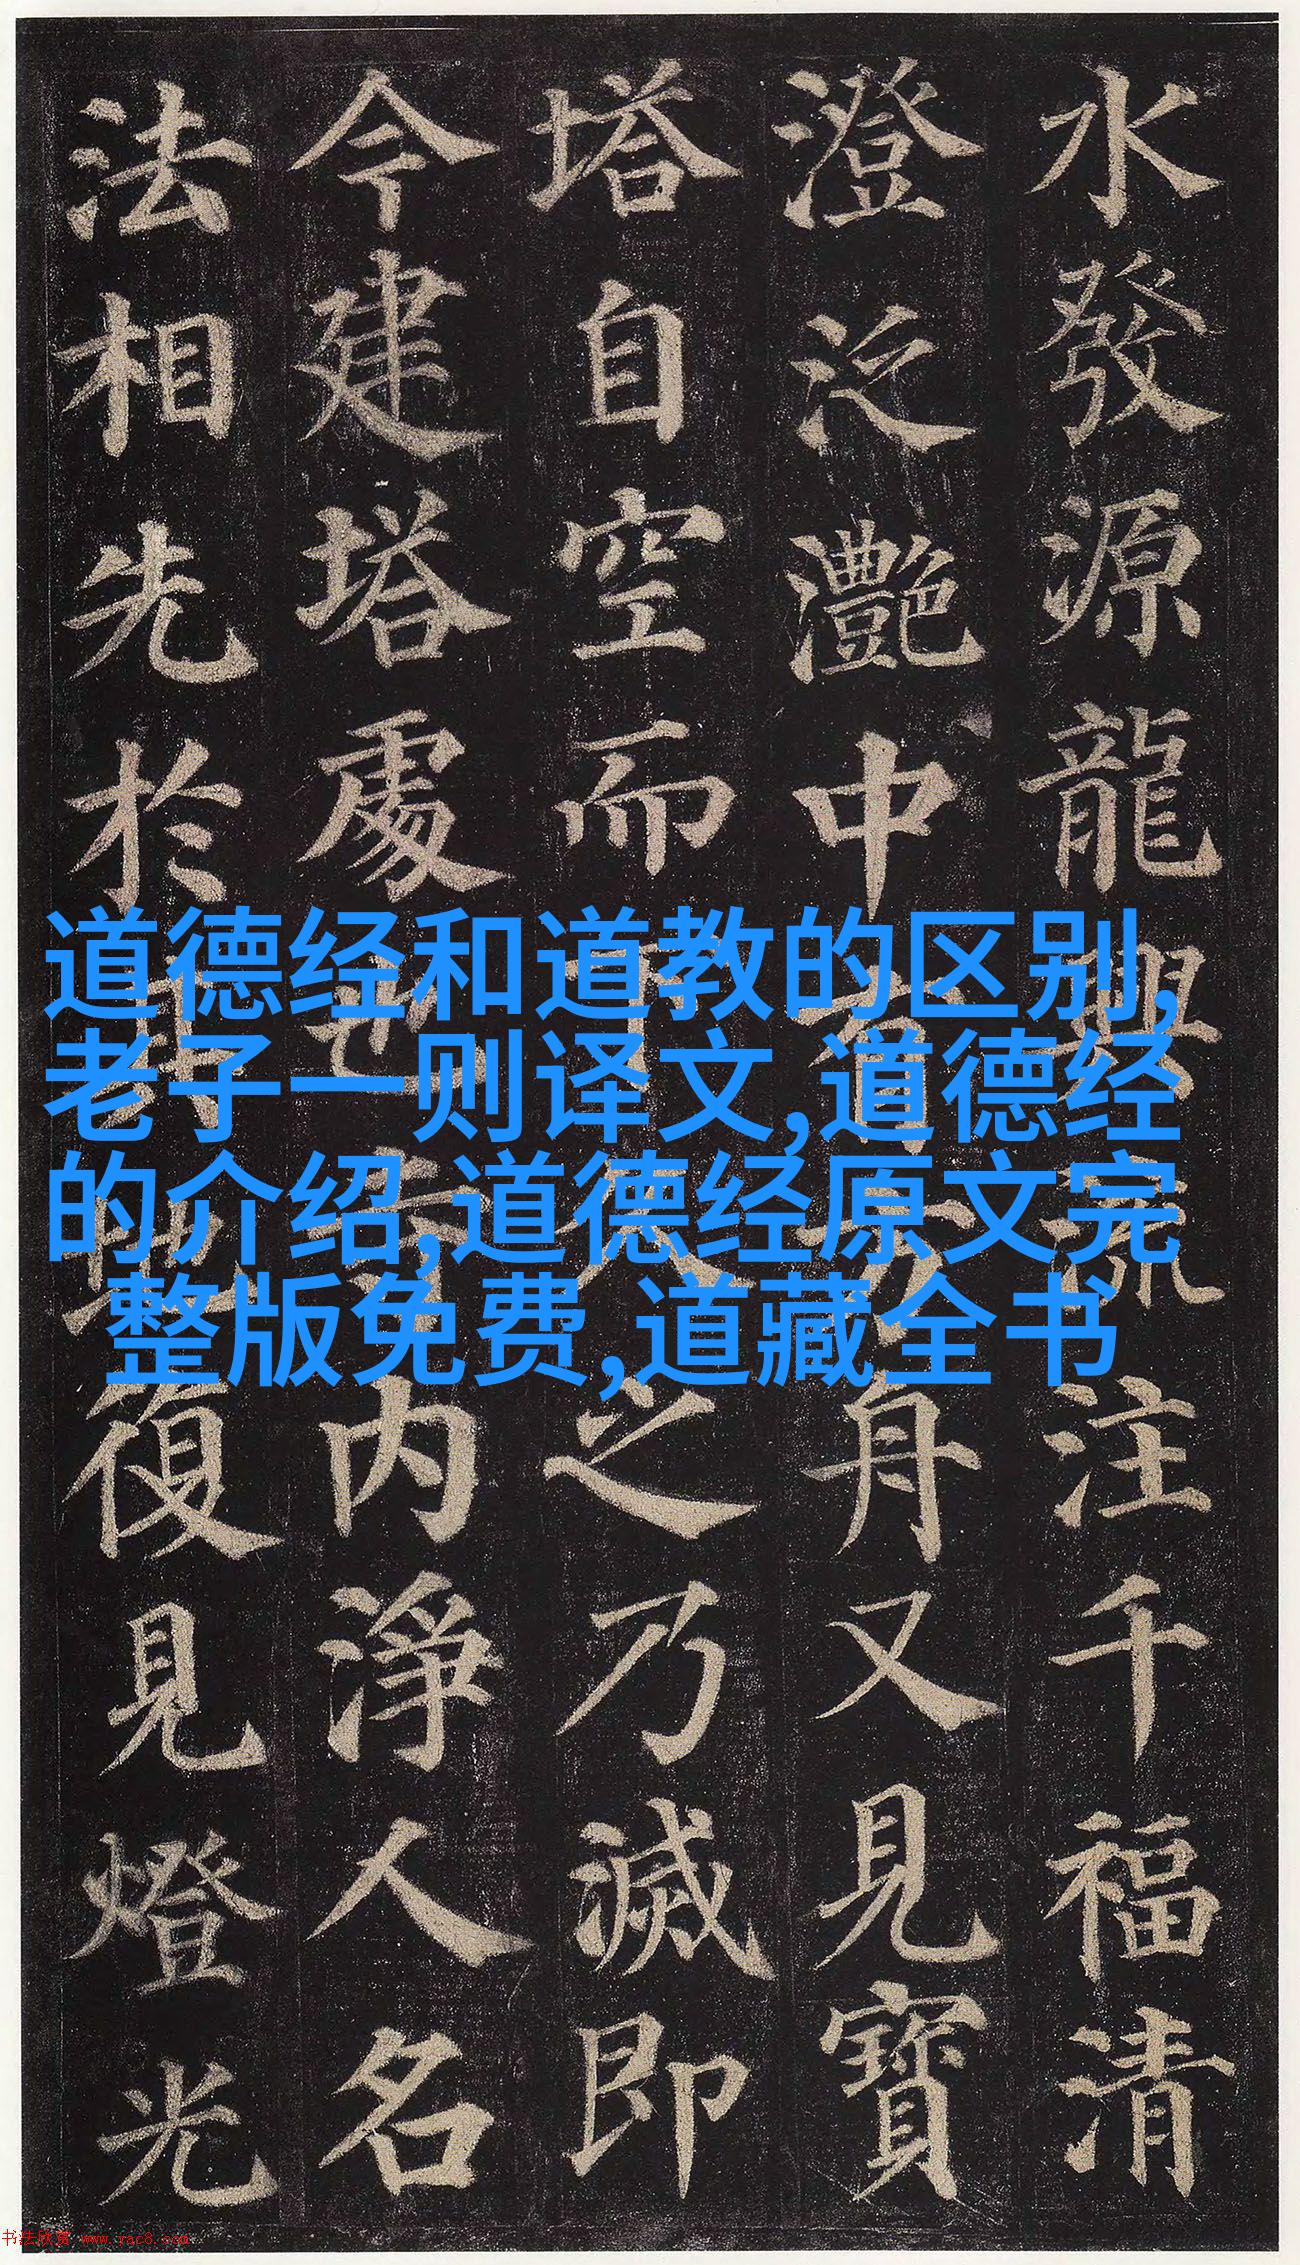 水發源龍興流注千福清
澄泛灔中有方舟又見寶
塔自空而下久之乃滅即
今建塔處也寺内淨人名
法相先於其地復見燈光
道德经和道教的区别,
老子一则译文,道德经
的介绍,道德经原文完
整版免费,道藏全书
书法欣赏 www.yac8.com